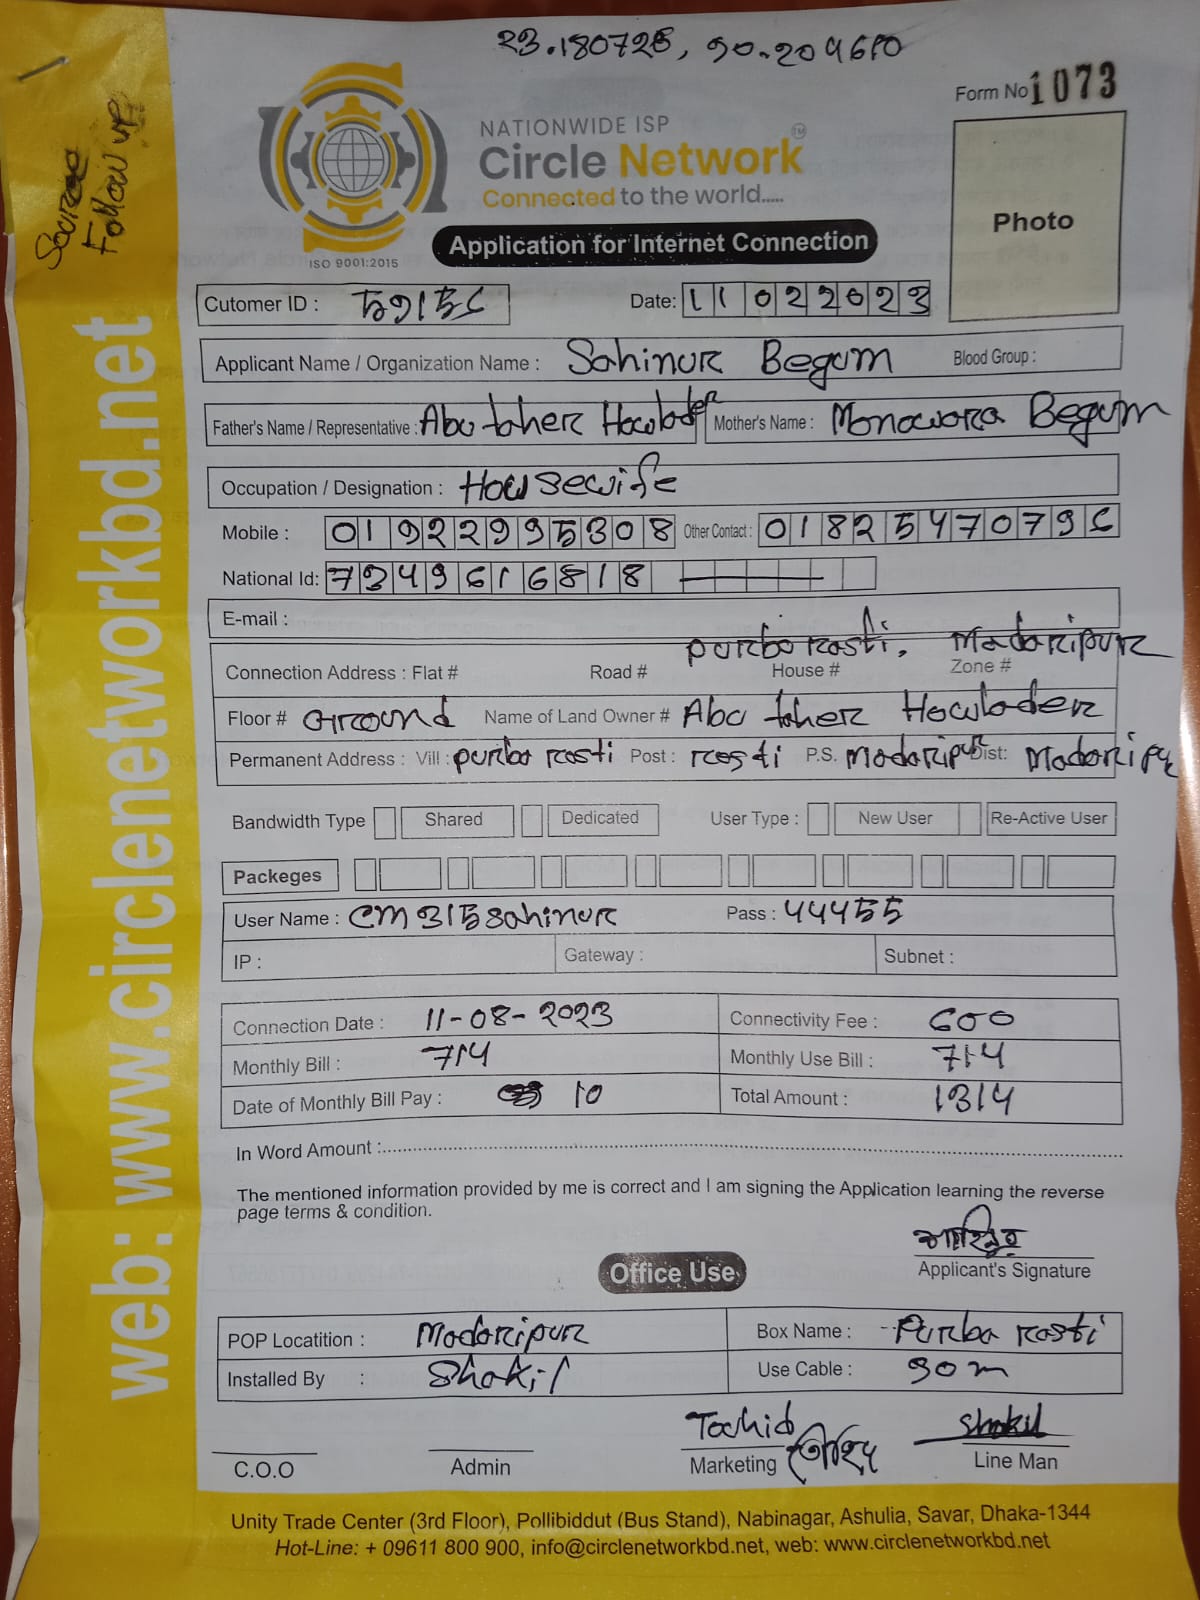 23.180725, 90.204610
Form No 1073
NATIONWIDE ISP
Circle Network
TM
Connected to the world.....
ISO 9001:2015
Application for Internet Connection
Photo
Source
Follow up
web: www.circlenetworkbd.net
Cutomer ID :
Date: 11022023
Applicant Name / Organization Name : Sahinur Begum Blood Group :
Father's Name / Representative : Abu taher Howlader Mother's Name : Monowora Begum
Occupation / Designation : Housewife
Mobile : 01922995308 Other Contact : 01825470796
National Id: 7349616818
E-mail :
purbo rasti, Madaripur
Connection Address : Flat # Road # House # Zone #
Floor # Ground Name of Land Owner # Abu taher Howlader
Permanent Address : Vill : purba rasti Post : rasti P.S. Madaripur Dist: Madaripu
Bandwidth Type Shared Dedicated User Type : New User Re-Active User
Packeges
User Name : CM315sahinur Pass : 44455
IP : Gateway : Subnet :
Connection Date : 11-08-2023 Connectivity Fee : 600
Monthly Bill : 714 Monthly Use Bill : 714
Date of Monthly Bill Pay : 10 Total Amount : 1314
In Word Amount :
The mentioned information provided by me is correct and I am signing the Application learning the reverse
page terms & condition.
শাহিনুর
Applicant's Signature
Office Use
POP Locatition : Madaripur Box Name : Purba rasti
Installed By : Shakil Use Cable : 90m
Tachid Shakil
C.O.O Admin Marketing Line Man
Unity Trade Center (3rd Floor), Pollibiddut (Bus Stand), Nabinagar, Ashulia, Savar, Dhaka-1344
Hot-Line: + 09611 800 900, info@circlenetworkbd.net, web: www.circlenetworkbd.net